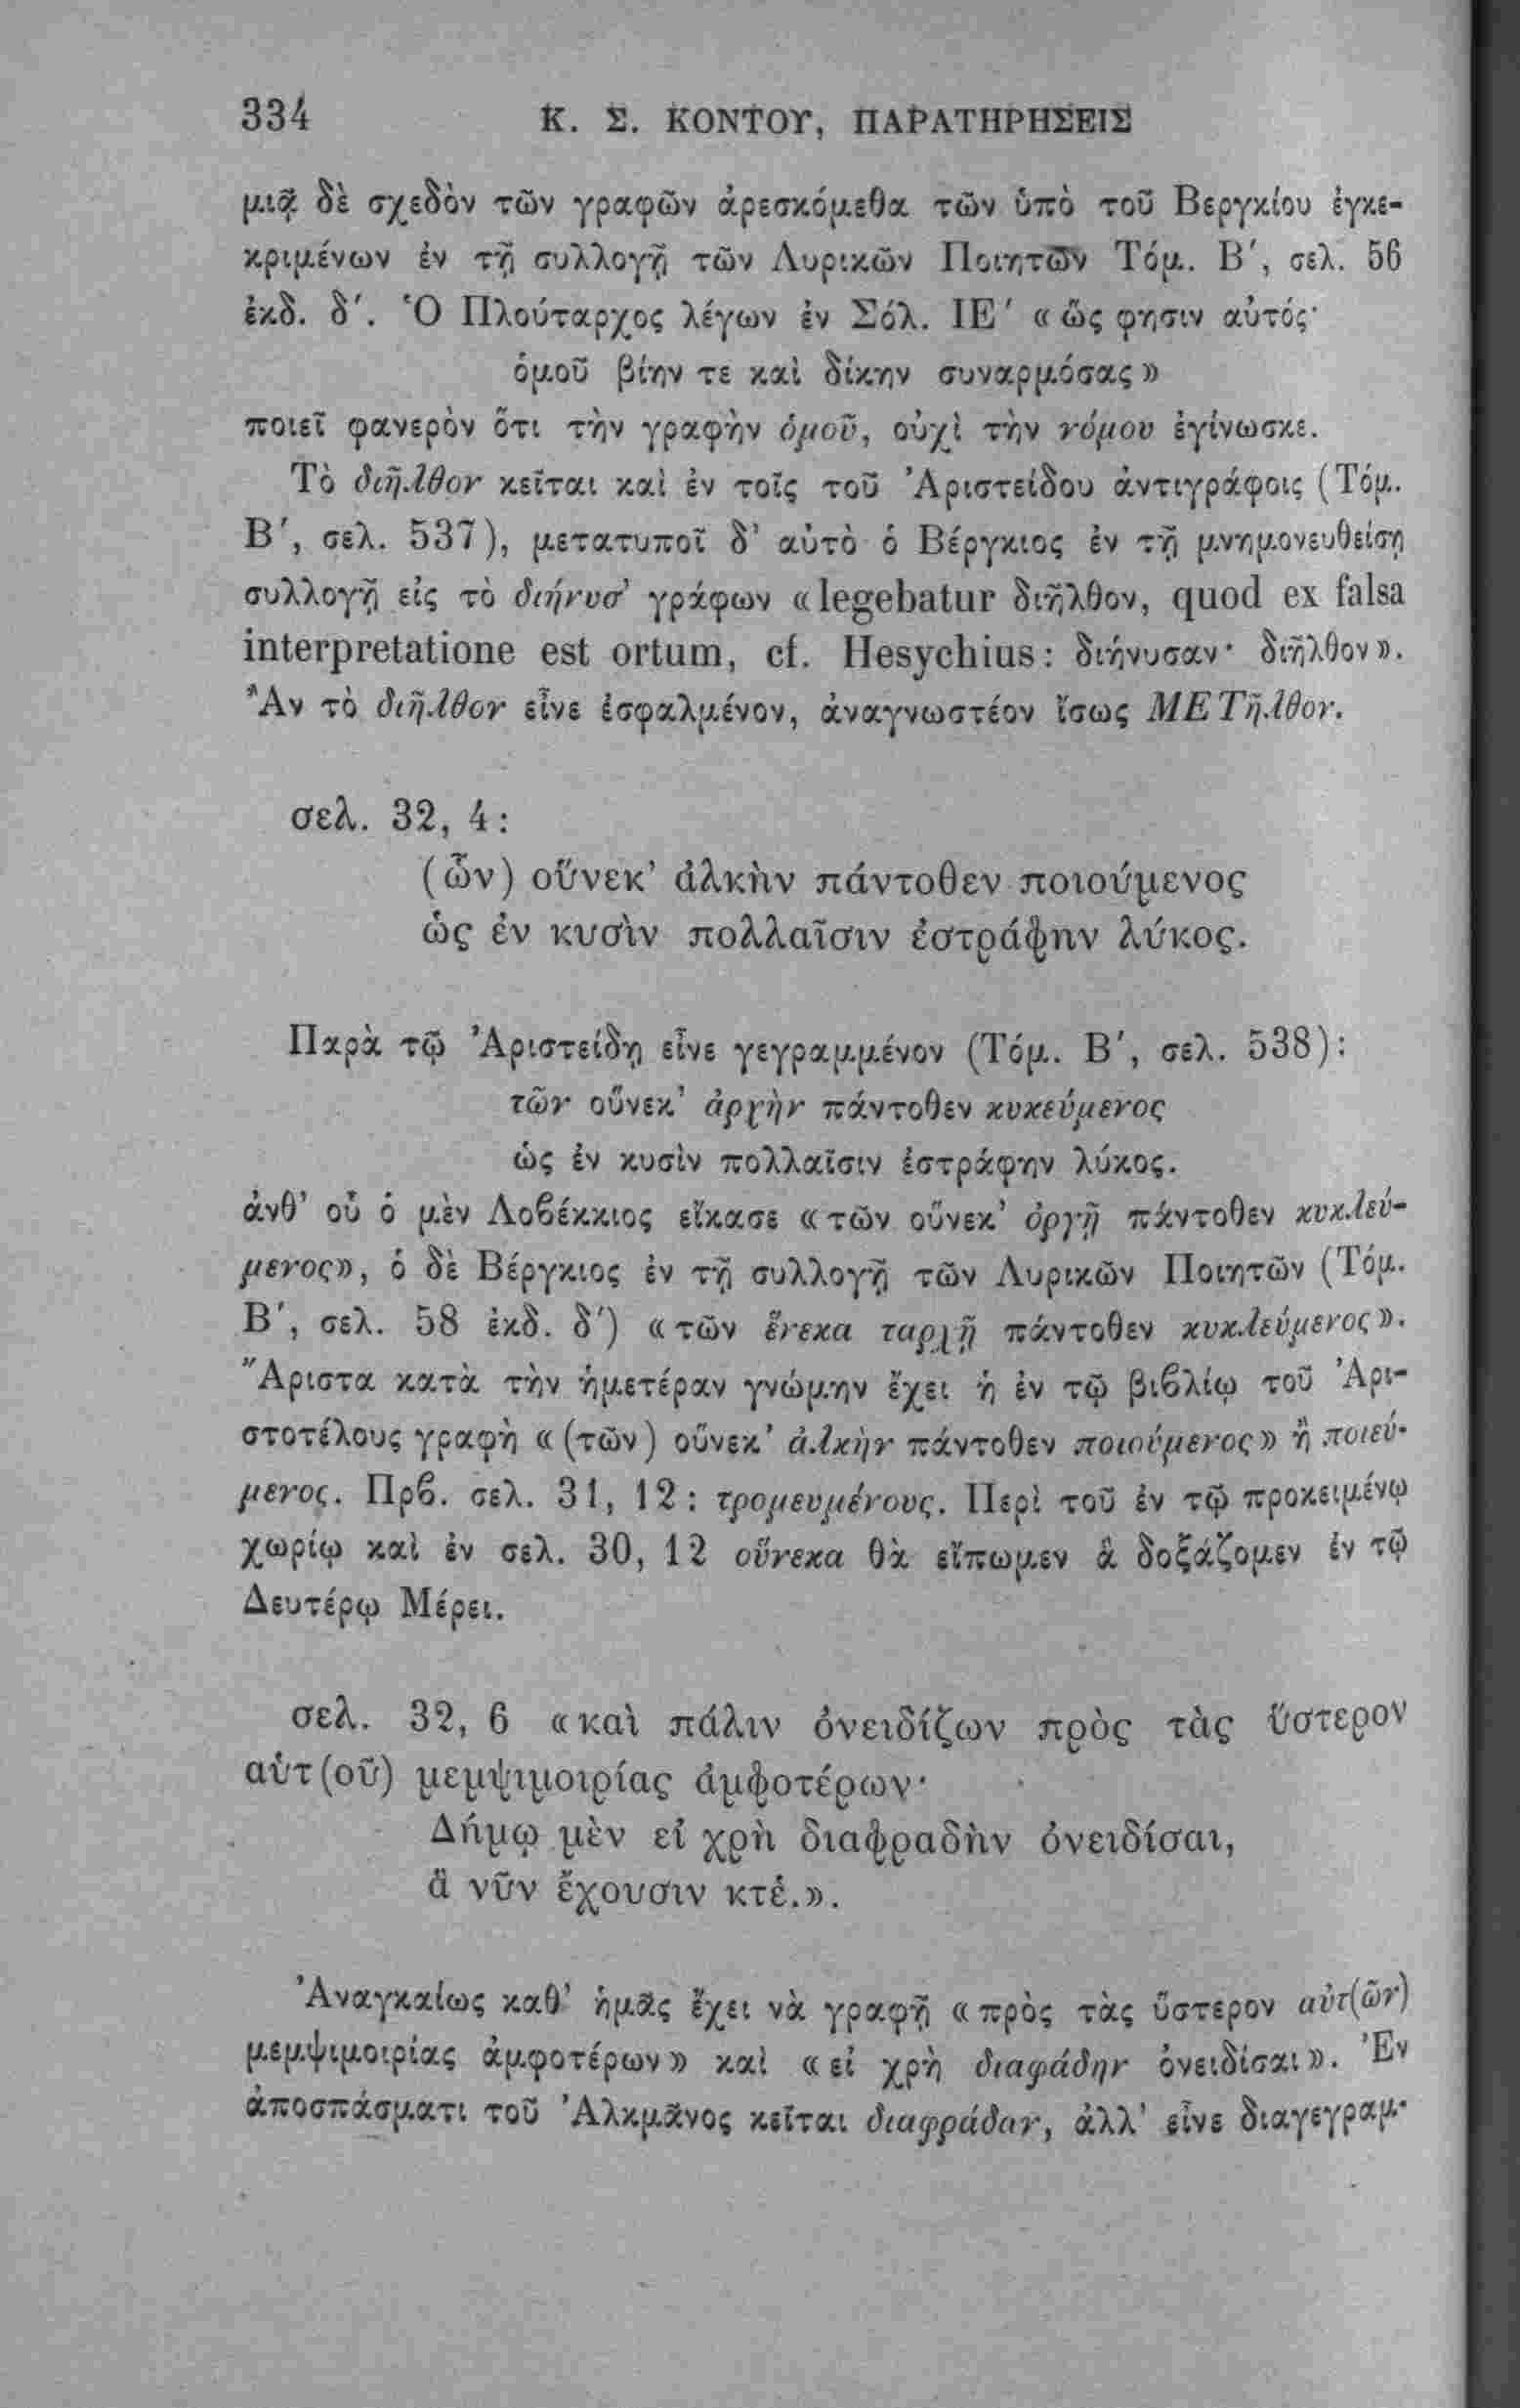 334 Κ. Σ. ΚΟΝΤΟΥ, ΠΑΡΑΤΗΡΗΣΕΙΣ
μιᾷ δὲ σχεδὸν τῶν γραφῶν ἀρεσκόμεθα τῶν ὑπὸ τοῦ Βεργκίου ἐγκε-
κριμένων ἐν τῇ συλλογῇ τῶν Λυρικῶν Ποιητῶν Τόμ. Β′, σελ. 56
ἐκδ. δ′. Ὁ Πλούταρχος λέγων ἐν Σόλ. ΙΕ′ «ὥς φησιν αὐτός·
ὁμοῦ βίην τε καὶ δίκην συναρμόσας»
ποιεῖ φανερὸν ὅτι τὴν γραφὴν ὁμοῦ, οὐχὶ τὴν νόμου ἐγίνωσκε.
Τὸ διῆλθον κεῖται καὶ ἐν τοῖς τοῦ Ἀριστείδου ἀντιγράφοις (Τόμ.
Β′, σελ. 537), μετατυποῖ δ’ αὐτὸ ὁ Βέργκιος ἐν τῇ μνημονευθείσῃ
συλλογῇ εἰς τὸ διήνυσ’ γράφων «legebatur διῆλθον, quod ex falsa
interpretatione est ortum, cf. Hesychius: διήνυσαν· διῆλθον».
Ἂν τὸ διῆλθον εἶνε ἐσφαλμένον, ἀναγνωστέον ἴσως ΜΕΤῆλθον.
σελ. 32, 4:
(ὧν) οὕνεκ’ ἀλκὴν πάντοθεν ποιούμενος
ὡς ἐν κυσὶν πολλαῖσιν ἐστράφην λύκος.
Παρὰ τῷ Ἀριστείδῃ εἶνε γεγραμμένον (Τόμ. Β′, σελ. 538):
τῶν οὕνεκ’ ἀρχὴν πάντοθεν κυκεύμενος
ὡς ἐν κυσὶν πολλαῖσιν ἐστράφην λύκος.
ἀνθ’ οὗ ὁ μὲν Λοβέκκιος εἴκασε «τῶν οὕνεκ’ ὀργῇ πάντοθεν κυκλεύ-
μενος», ὁ δὲ Βέργκιος ἐν τῇ συλλογῇ τῶν Λυρικῶν Ποιητῶν (Τόμ.
Β′, σελ. 58 ἐκδ. δ′) «τῶν ἕνεκα ταρχῇ πάντοθεν κυκλεύμενος».
Ἄριστα κατὰ τὴν ἡμετέραν γνώμην ἔχει ἡ ἐν τῷ βιβλίῳ τοῦ Ἀρι-
στοτέλους γραφὴ «(τῶν) οὕνεκ’ ἀλκὴν πάντοθεν ποιούμενος» ἢ ποιεύ-
μενος. Πρβ. σελ. 31, 12: τρομευμένους. Περὶ τοῦ ἐν τῷ προκειμένῳ
χωρίῳ καὶ ἐν σελ. 30, 12 οὕνεκα θὰ εἴπωμεν ἃ δοξάζομεν ἐν τῷ
Δευτέρῳ Μέρει.
σελ. 32, 6 «καὶ πάλιν ὀνειδίζων πρὸς τὰς ὕστερον
αὐτ(οῦ) μεμψιμοιρίας ἀμφοτέρων·
Δήμῳ μὲν εἰ χρὴ διαφραδὴν ὀνειδίσαι,
ἃ νῦν ἔχουσιν κτἑ.».
Ἀναγκαίως καθ’ ἡμᾶς ἔχει νὰ γραφῇ «πρὸς τὰς ὕστερον αὐτ(ῶν)
μεμψιμοιρίας ἀμφοτέρων» καὶ «εἰ χρὴ διαφάδην ὀνειδίσαι». Ἐν
ἀποσπάσματι τοῦ Ἀλκμᾶνος κεῖται διαφράδαν, ἀλλ’ εἶνε διαγεγραμ-